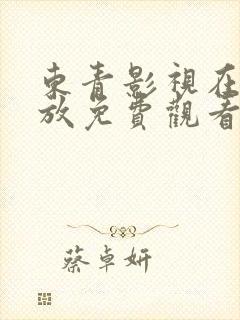 東青影視在
放免費觀看
蔡卓妍